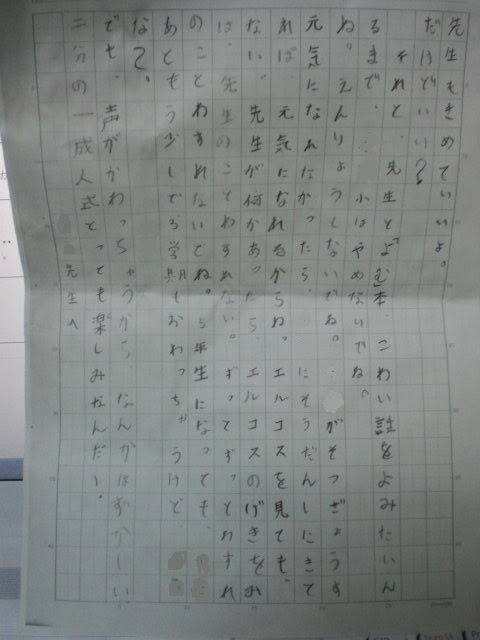 先生へ
二分の一成人式とっても楽しみなんだー。
でも、声がかわっちゃうから、なんかはずかしい
な?。
あともう少しで3学期もおわっちゃうけど
のことわすれないでね。5年生になっても
は、先生のことわすれない。ずっとずっとわすれ
ない。先生が何かあったら、エルコスのげきをみ
れば、元気になれるからね。エルコスを見ても、
元気になれなかったら、にそうだんしにきて
ね。えんりょうしないでね。がそつぎょうす
るまで、小はやめないでね。
それと、先生とよむ本こわい話をよみたいん
だけどいい?
先生もきめていいよ。